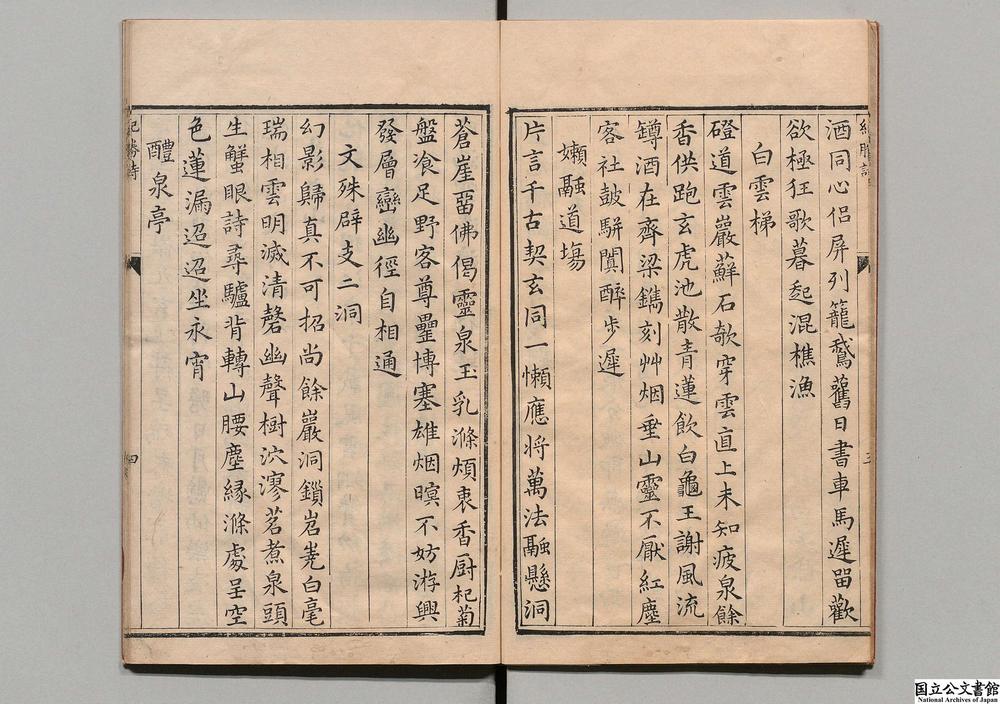 酒同心侶屏列籠鵞舊日書車馬遲畱歡
欲極狂歌暮起混樵漁
白雲梯
磴道雲巖蘚石欹穿雲直上未知疲泉餘
香供跑玄虎池散青蓮飲白龜王謝風流
鐏酒在齊梁鐫刻艸烟垂山靈不厭紅塵
客社皷駢闐醉步遲
嬾融道塲
片言千古契玄同一懶應將萬法融懸洞
蒼崖畱佛偈靈泉玉乳滌煩衷香厨杞菊
盤飡足野客尊罍博塞雄烟暝不妨游興
發層巒幽徑自相通
文殊辟支二洞
幻影歸真不可招尚餘巖洞鎖岧嶤白毫
瑞相雲明滅清磬幽聲樹泬寥茗煮泉頭
生蟹眼詩尋驢背轉山腰塵緣滌處呈空
色蓮漏迢迢坐永宵
醴泉亭
記勝詩
四
国立公文書館
National Archives of Japan